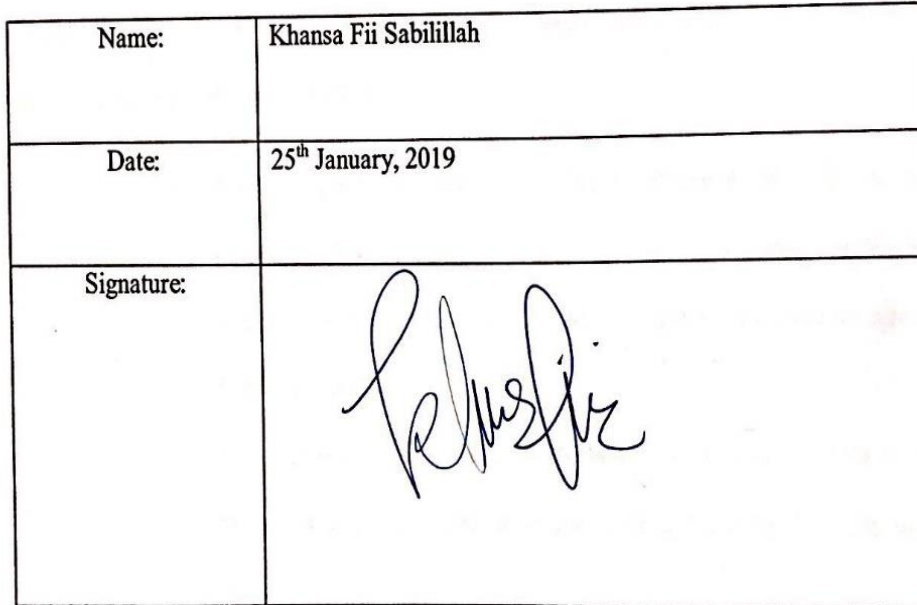 Name: Khansa Fii Sabilillah
Date: 25th January, 2019
Signature: